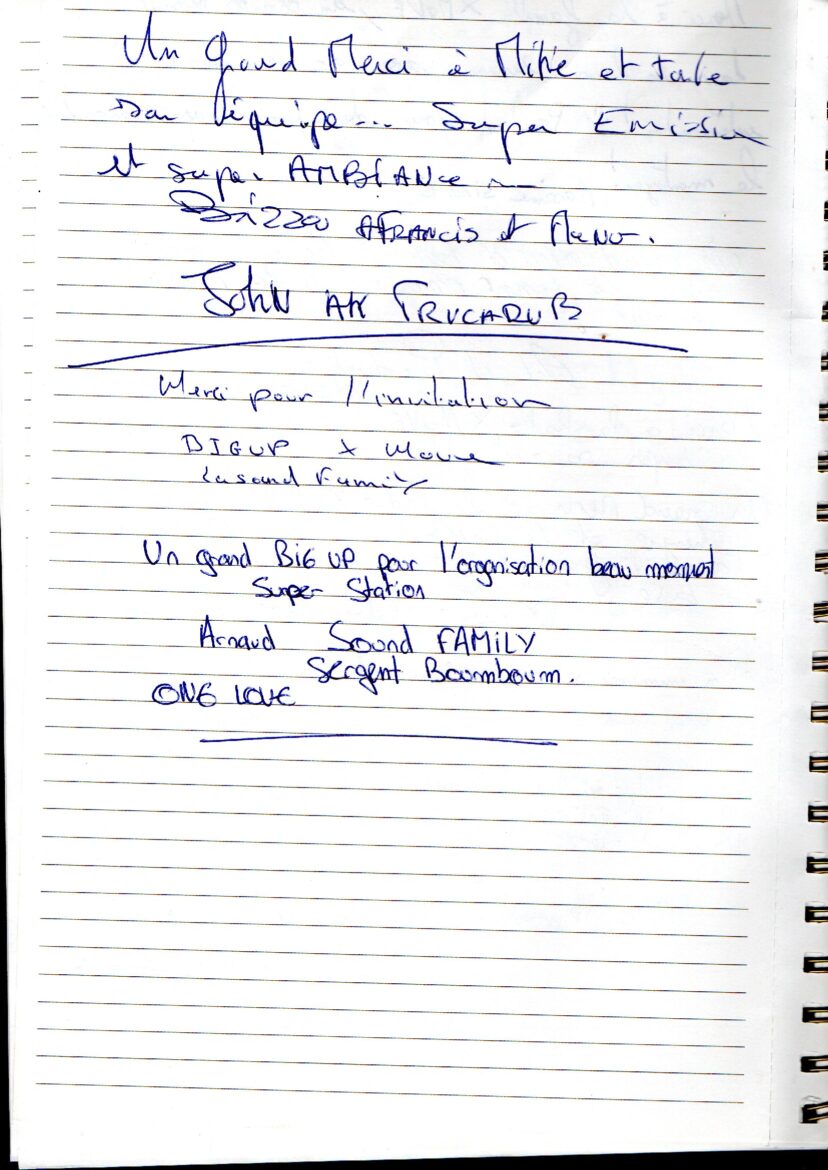 Un Grand Merci à Mike et toute
son équipe... Super Emission
et super AMBIANCE
Bizzou A FRANCIS et Manu.
JOHN AK TRUCADUB
Merci pour l'invitation
BIGUP
Lasound Family
Un grand BIG UP pour l'organisation beau moment
Super Station
Arnaud Sound FAMILY
Sergent Boumboum.
ONE LOVE